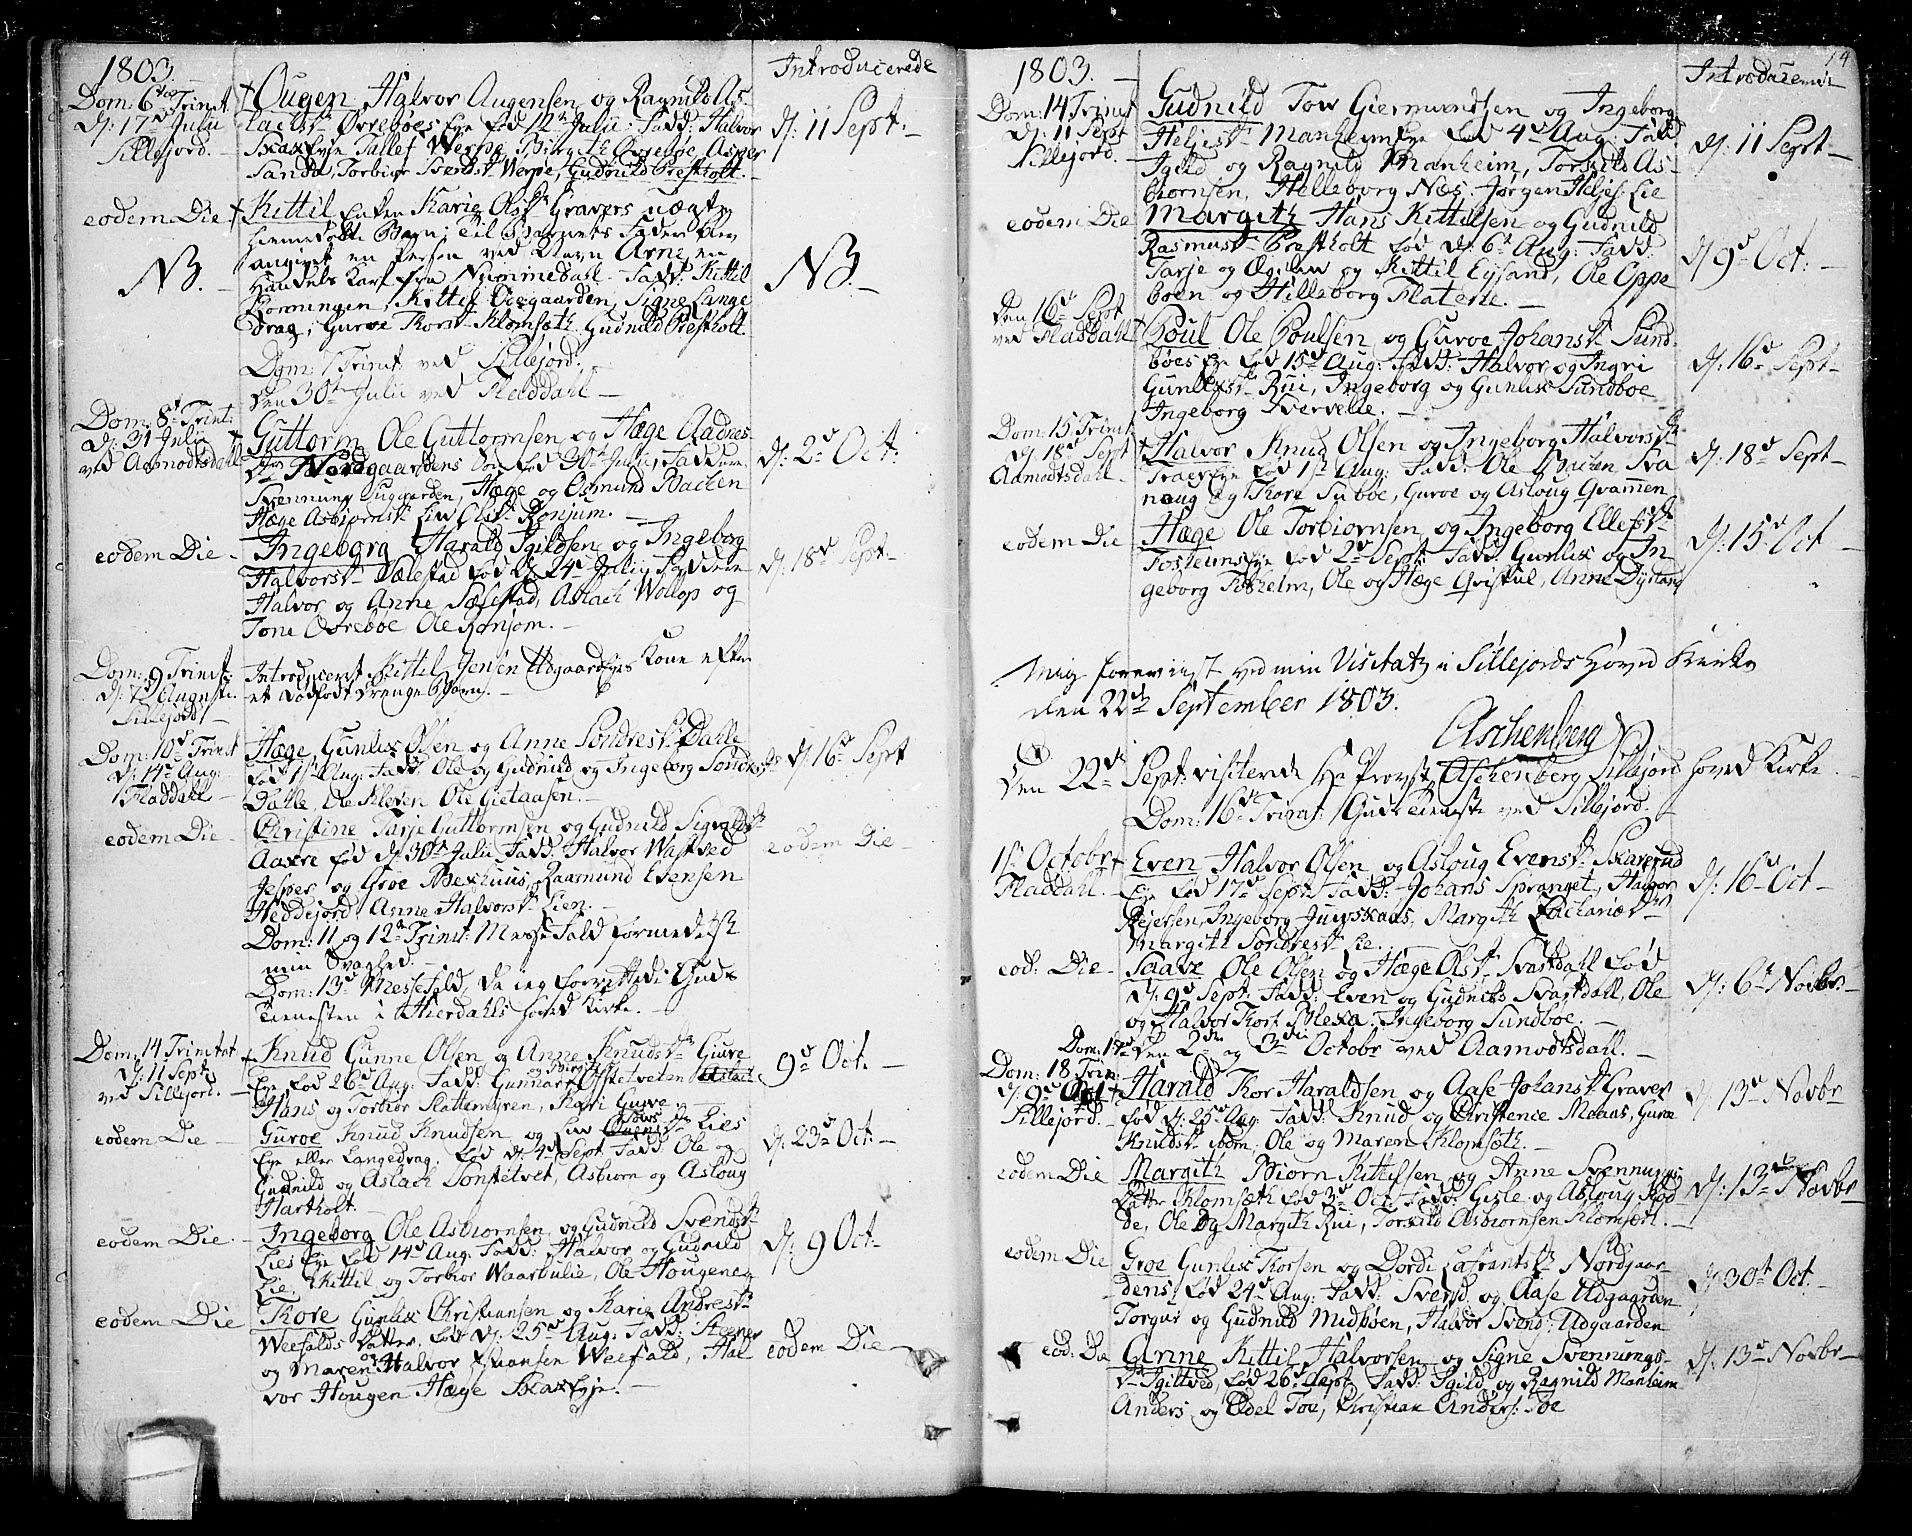 1803.
Introducerede
Dom: 6te Trinit
d: 17de Julii
Sillejord.
+ Ougen Halvor Augensen og Ragnild As-
lachsdr Øvrebøes Eye fød 12te Julii: Fadd: Halvor
Skaxeye Tallef Werpe, Birgith Øvrebøe, Asger
Sanda, Torbiør Svendsdr Werpe, Gudnild Præstholt.
d: 11 Sept:
eodem Die
+ Kittil Enken Karie Olsdr Gravers uægte
hiemedøbte Barn; til Barnets Fader blev
angivet en Person ved Navn Arne, en
Handels Karl fra Nummedahl. Fadd: Kittil
Kittil Odegaarden, Signe Lange
drag, Guroe Thorsdr Klomseth Gudnild Præstholt
NB.
NB.
Dom: 7 Trinit ved Sillejord.
Den 30te Julii ved Fladdahl
Dom: 8de Trint:
d: 31 Julii
ved Aamodtsdahl
+ Guttorm Ole Guttormsen og Hæge Aadnes
dr Nordgaardens Søn fød 30te Julii, Faddere
Svennung Suggarden, Hæge og Osmund Bachen
Hæge Asbiørnsdr Liv Olsdr Rønjum.
d: 2de Oct:
eodem Die
Ingeborg Harald Igildsen og Ingeborg
Halvorsdr Sælestad fød d: 24de Julii, Faddere
Halvor og Anne Sælestad, Aslach Wollop og
Tone Øvrebøe Ole Rønjom.
d: 18de Sept
Dom: 9 Trinit:
d: 7de Augusti.
Sillejord
Introduceret Kittil Jensen Udgaardens Kone efter
et dødfødt Drenge Barn.
Dom: 10de Trinit
d: 14de Aug:
Fladdahl
Hæge Gunlix Olsen og Anne Sondresdr Dahle
fød 1ste Aug: Fadd: Ole og Gudnild og Ingeborg Sondresdr
Dahle, Ole Kleven Ole Gietaasen.
d: 16de Sept
eodem Die
Christine Tarje Guttormsen og Gudnild Sigvaldsdr
Aaxre fød d: 30te Julii Fadd: Halvor Wastved
Jesper og Groe Bexhuus, Raamund Evensen
Heddejord, Anne Halvorsdr Lien.
eodem Die
Dom: 11 og 12te Trinit: Messefald formedelst
min Svaghed.
Dom: 13de Messefald, da jeg forrettede Guds
Tienesten i Hierdahls Hoved Kirke.
Dom: 14 Trinitat
d: 11 Sept:
ved Sillejord.
+ Knud Gunne Olsen og Anne Knudsdr Guroe
Eye fød 26de Aug: Fadd: Gunnar og Birgith Offtetveten
Hans og Torbiør Slattemyren, Kari Guroe
9de Oct.
eodem Die
Guroe Knud Knudsen og Liv Tows dr Lies
Eye eller Langedrag, fød d: 4de Sept Fadd: Ole og
Gudnild og Aslach Tonstetvet, Asbiorn og Asloug
Hartholt.
d: 23de Oct:
eodem Die.
Ingeborg Ole Asbiornsen og Gudnild Svendsdr
Lies Eye fød 14de Aug: Fadd: Halvor og Gudnild
Lie, Kittil og Torbiør Waarbulie, Ole Hougeneg
d: 9 Oct:
eodem Die
Thore Gunlix Christiansen og Karie Andresdr
Weefalds Datter, fød d: 25de Aug: Fadd: Steener
og Maren og Halvor Xstiansen Weefald, Hal
vor Hougen Hæge Skaxeye.
eodem Die
14
1803.
Introducerede
Dom: 14 Trinit
d: 11 Sept
Sillejord.
Gudnild Tow Giermundsen og Ingeborg
Heljesdr Manheims Eye fød 4de Aug: Fadd
Igild og Ragnild Manheim, Torkild As-
biornsen, Helleborg Næs, Jørgen Heljes: Lie
d: 11 Sept
eodem Die
Margith Hans Kittilsen og Gudnild
Rasmusdr Præstholt fød d: 6te Aug: Fadd:
Tarje og og Kittil Eysand, Ole Oppe
boen og Hilleborg Flatene.
d: 9de Oct:
Den 16de Sept
ved Fladdahl
Poul Ole Poulsen og Guroe Johansdr Sund
bøes Eye fød 15de Aug: Fadd: Halvor og Ingri
Gunlixdr Rui, Ingeborg og Gunlix Sundboe
Ingeborg Tvervelle.
d: 16de Sept
Dom: 15 Trinit
d: 18de Sept
Aamodtsdahl
+ Halvor Knud Olsen og Ingeborg Halvorsdr
Traaes Eye fød 1ste Aug: Fadd: Ole Bachen Sva
naug og Thore Subøe, Guroe og Asloug Qvammen
d: 18de Sept
eodem Die
Hæge Ole Torbiornsen og Ingeborg Ellefsdr
Fosheims Eye fød 2de Sept Fadd: Gunlix og In
geborg Fosheim, Ole og Hæge Qvistul, Anne Dystand
d: 15de Oct
Mig foreviist ved min Visitatz i Sillejords Hoved Kirke
den 22de September 1803.
Aschenberg
Den 22de Sept: visiterede Hr Provst Aschenberg Sillejord Hoved Kirke.
Dom: 16de Trinit: Guds Tieneste ved Sillejord.
1ste Octobr
Fladdahl
+ Even Halvor Olsen og Asloug Evensdr Skarprud
Eye fød 17de Sept: Fadd: Johans Spranget, Halvor
Rejersen, Ingeborg Juvskaas, Margith Zachariædr
Margith Sondresdr Lie.
d: 16de Oct
eod: Die
Saave Ole Olsen og Hæge Olsdr Svartdahl fød
d: 9de Sept: Fadd: Even og Gudnild Svartdahl, Ole
og Halvor Thors: Blexa. Ingeborg Sundboe.
d: 6te Novbr:
Dom: 17de den 2den og 3die Octobr ved Aamodtsdahl.
Dom: 18 Trin:
d: 9de Oct
Sillejord.
+ Harald Thor Haraldsen og Aase Johansdr Graver
fød d: 25de Aug: Fadd: Knud og Christence Maaas, Guroe
Knudsdr ibm: Ole og Maren Klomseth.
d: 13de Novbr
eodem Die
Margith Biorn Kittilsen og Anne Svennungs
Datter Klomseth fød 3de Oct: Fadd: Gisle og Asloug Rod
de, Ole og Margith Rui, Torkild Asbiornsen Klomseth.
d: 13de Novbr
eodem Die
Groe Gunlix Thorsen og Dordi Lafrantsdr Nordgaar-
dens fød 24de Aug: Fadd: Svend og Aase Udgaarden
Torgus og Gudnild Midbøen, Halvor Svend: Udgaarden
d: 30te Oct.
eod: Die
Anne Kittil Halvorsen og Signe Svennungs-
dr Igiltved, fød 26de Sept Fadd: Igild og Ragnild Manheim
Anders og Edel Toe, Christian Anders: Toe
d: 13de Novbr